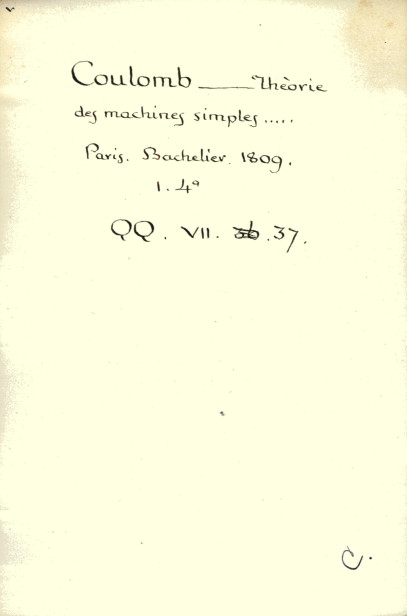 Coulomb ——— Thèorie
des machines simples.....
Paris. Bachelier. 1809.
1. 4º
QQ. VII. 37.
C.